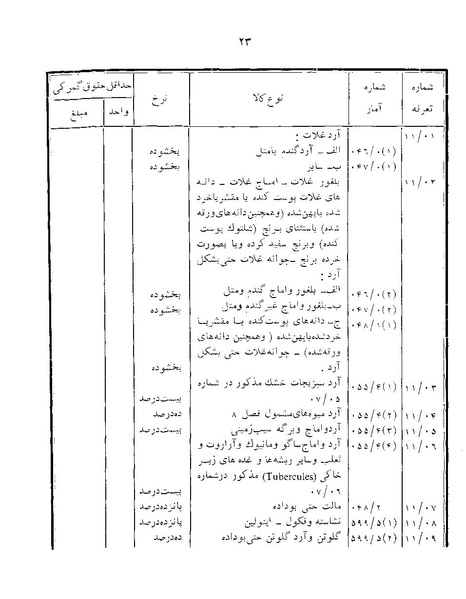 ۲۳
شماره تعرفه شماره آمار نوع کالا نرخ حداقل حقوق گمرکی
واحد مبلغ
۱۱/۰۱ آرد غلات :
۰۴۶/۰(۱) الف ـ آرد گندم یا متل بخشوده
۰۴۷/۰(۱) ب ـ سایر بخشوده
۱۱/۰۲ بلغور غلات ـ اماج غلات ـ دانه
های غلات پوست کنده یا مقشر یا خرد
شده یا پهن شده (وهمچنین دانه‌های ورقه
شده) باستثنای برنج (شلتوک پوست
کنده) وبرنج سفید کرده ویا بصورت
خرده برنج ـ جوانه غلات حتی بشکل
آرد :
۰۴۶/۰(۲) الف ـ بلغور واماج گندم ومتل بخشوده
۰۴۷/۰(۲) ب ـ بلغور واماج غیر گندم ومتل بخشوده
۰۴۸/۱(۱) ج ـ دانه‌های پوست کنده یا مقشر یا
خرد شده یا پهن شده ( وهمچنین دانه‌های
ورقه شده) ـ جوانه غلات حتی بشکل
آرد . بخشوده
۱۱/۰۳ ۰۵۵/۴(۱) آرد سبزیجات خشك مذکور در شماره
۰۷/۰۵ بیست درصد
۱۱/۰۴ ۰۵۵/۴(۲) آرد میوه‌های مشمول فصل ۸ ده درصد
۱۱/۰۵ ۰۵۵/۴(۳) آرد واماج وبرگه سیب زمینی بیست درصد
۱۱/۰۶ ۰۵۵/۴(۴) آرد واماج ساگو ومانیوک وآراروت و
ثعلب وسایر ریشه‌ها و غده های زیر
خاکی (Tubercules) مذکور درشماره
۰۷/۰۶ بیست درصد
۱۱/۰۷ ۰۴۸/۲ مالت حتی بوداده پانزده درصد
۱۱/۰۸ ۵۹۹/۵(۱) نشاسته وفکول ـ اینولین پانزده درصد
۱۱/۰۹ ۵۹۹/۵(۲) گلوتن وآرد گلوتن حتی بوداده ده درصد